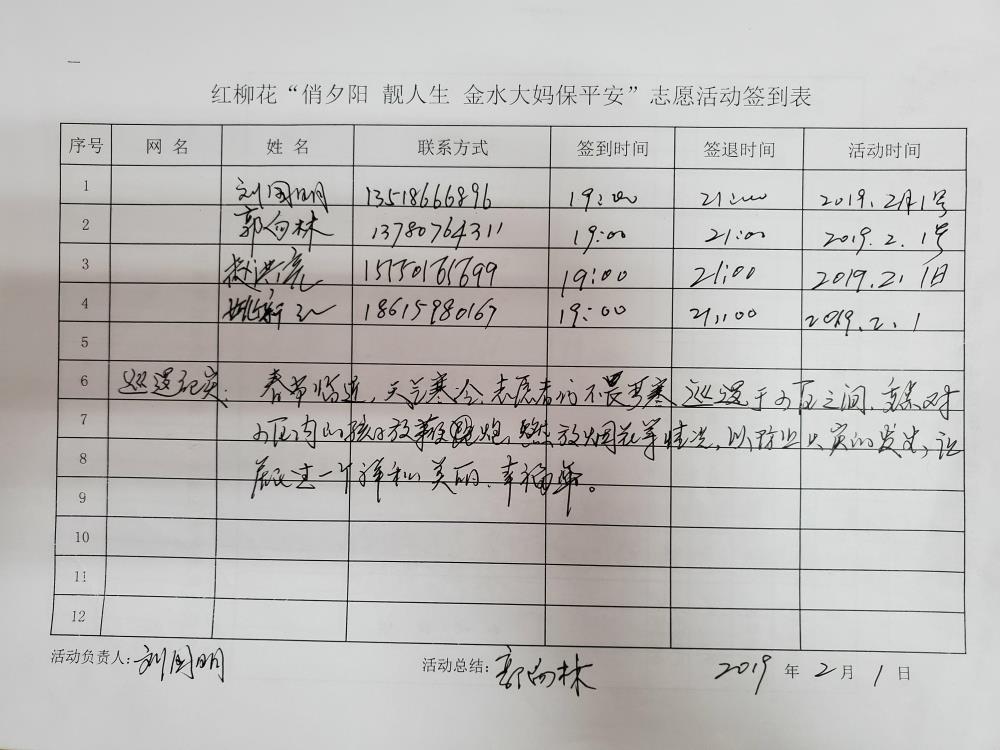 红柳花“俏夕阳 靓人生 金水大妈保平安”志愿活动签到表
序号 网 名 姓 名 联系方式 签到时间 签退时间 活动时间
1 刘国明 13518666896 19:00 21:00 2019.2月1号
2 郭向林 13780764311 19:00 21:00 2019.2.1号
3 赵洪亮 15750161699 19:00 21:00 2019.2.1日
4 姚新 18615980167 19:00 21:00 2019.2.1
5
6 巡逻纪实: 春节临近,天气寒冷,志愿者们不畏严寒 巡逻于小区之间,重点对
7 小区内小孩的放鞭炮,燃放烟花等情况,以防止火灾的发生,让
8 居民过一个祥和、美丽、幸福年。
9
10
11
12
活动负责人:刘国明 活动总结:郭向林 2019 年 2 月 1 日